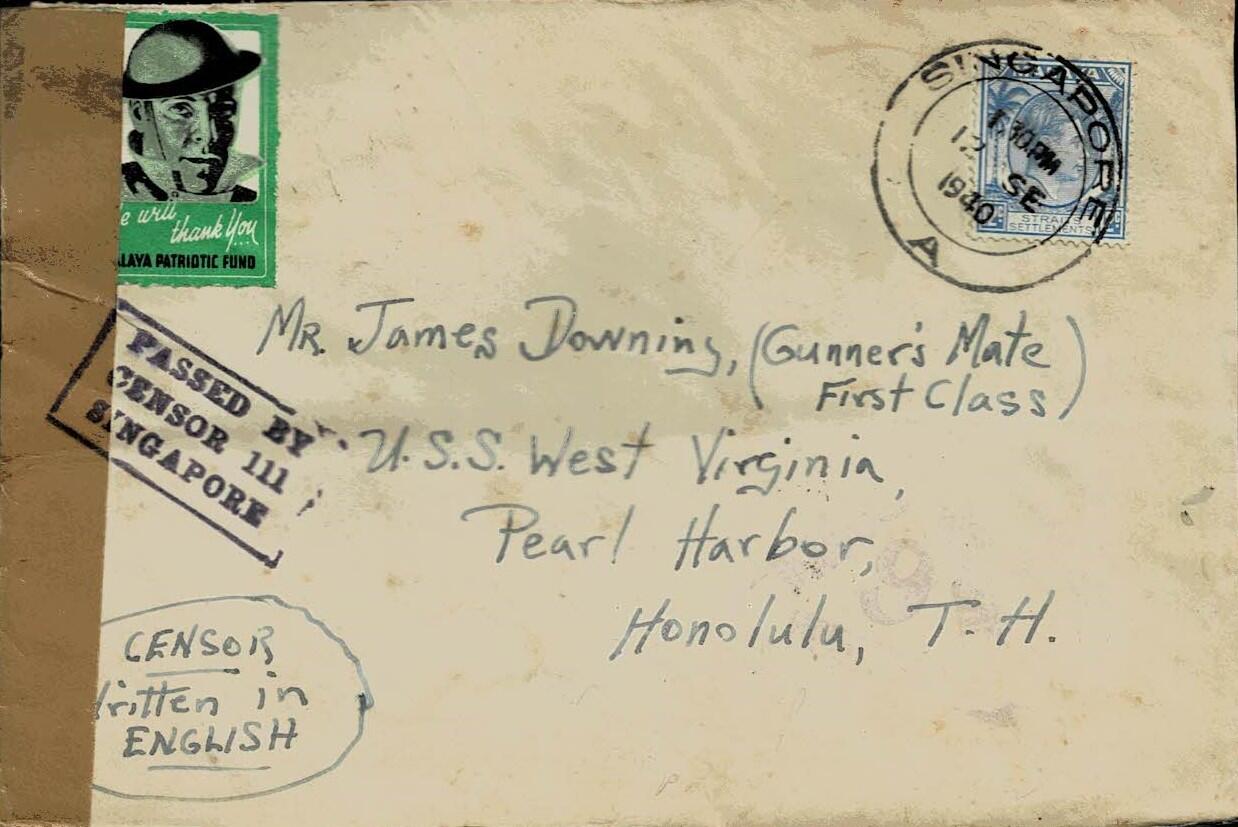 e will
thank you...
LAYA PATRIOTIC FUND
SINGAPORE
12 SE
1940
A
STRAITS
SETTLEMENTS
MR. James Downing, (Gunner's Mate
First Class)
U.S.S. West Virginia,
Pearl Harbor,
Honolulu, T.H.
PASSED BY
CENSOR 111
SINGAPORE
CENSOR
ritten in
ENGLISH